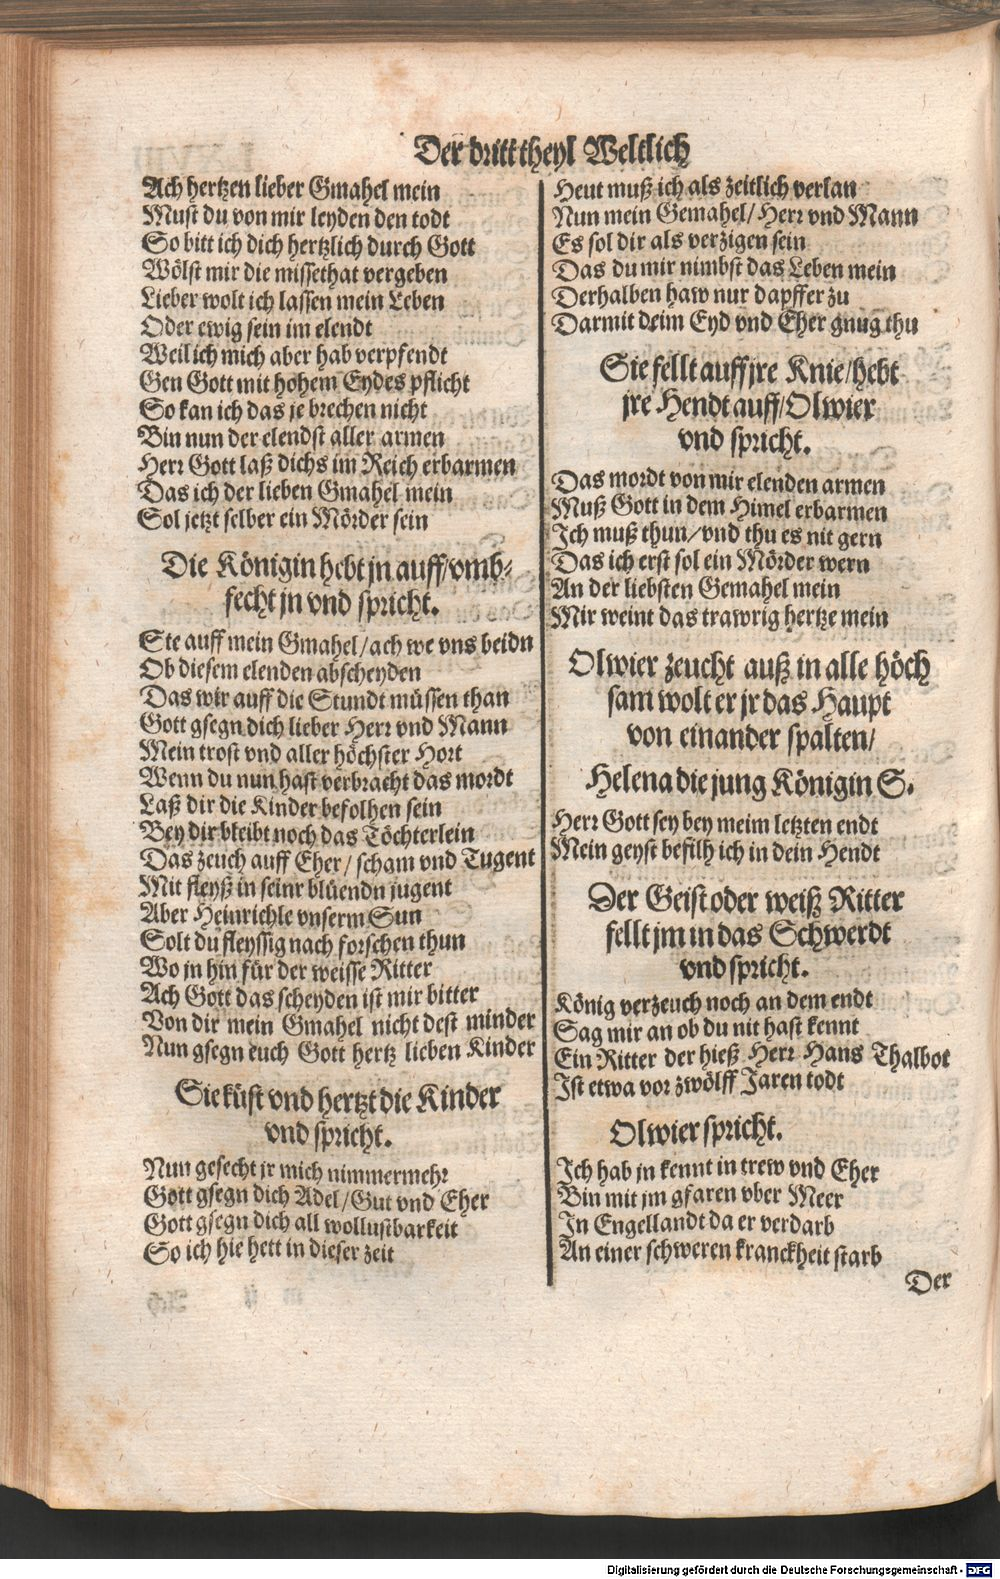 Der dritt theyl Weltlich
Ach hertzen lieber Gmahel mein
Must du von mir leyden den todt
So bitt ich dich hertzlich durch Gott
Wölst mir die missethat vergeben
Lieber wolt ich lassen mein Leben
Oder ewig sein im elendt
Weil ich mich aber hab verpfendt
Gen Gott mit hohem Eydes pflicht
So kan ich das je brechen nicht
Bin nun der elendst aller armen
Herr Gott laß dichs im Reich erbarmen
Das ich der lieben Gmahel mein
Sol jetzt selber ein Mörder sein
Die Königin hebt jn auff/vmb-
fecht jn vnd spricht.
Ste auff mein Gmahel/ach we vns beidn
Ob diesem elenden abscheyden
Das wir auff die Stundt müssen than
Gott gsegn dich lieber Herr vnd Mann
Mein trost vnd aller höchster Hort
Wenn du nun hast verbracht das mordt
Laß dir die Kinder befolhen sein
Bey dir bleibt noch das Töchterlein
Das zeuch auff Eher/ scham vnd Tugent
Mit fleyß in seinr blüendn jugent
Aber Heinrichle vnserm Sun
Solt du fleyssig nach forschen thun
Wo jn hin für der weisse Ritter
Ach Gott das scheyden ist mir bitter
Von dir mein Gmahel nicht dest minder
Nun gsegn euch Gott hertz lieben Kinder
Sie küst vnd hertzt die Kinder
vnd spricht.
Nun gesecht jr mich nimmermehr
Gott gsegn dich Adel/Gut vnd Eher
Gott gsegn dich all wollustbarkeit
So ich hie hett in dieser zeit
Heut muß ich als zeitlich verlan
Nun mein Gemahel/Herr vnd Mann
Es sol dir als verzigen sein
Das du mir nimbst das Leben mein
Derhalben haw nur dapffer zu
Darmit deim Eyd vnd Eher gnug thu
Sie fellt auff jre Knie/hebt
jre Hendt auff/Olwier
vnd spricht.
Das mordt von mir elenden armen
Muß Gott in dem Himel erbarmen
Ich muß thun/vnd thu es nit gern
Das ich erst sol ein Mörder wern
An der liebsten Gemahel mein
Mir weint das trawrig hertze mein
Olwier zeucht auß in alle höch
sam wolt er jr das Haupt
von einander spalten/
Helena die jung Königin S.
Herr Gott sey bey meim letzten endt
Mein geyst befilh ich in dein Hendt
Der Geist oder weiß Ritter
fellt jm in das Schwerdt
vnd spricht.
König verzeuch noch an dem endt
Sag mir an ob du nit hast kennt
Ein Ritter der hieß Herr Hans Thalbot
Ist etwa vor zwölff Jaren todt
Olwier spricht.
Ich hab jn kennt in trew vnd Eher
Bin mit jm gfaren vber Meer
In Engellandt da er verdarb
An einer schweren kranckheit starb
Der
Digitalisierung gefördert durch die Deutsche Forschungsgemeinschaft - DFG